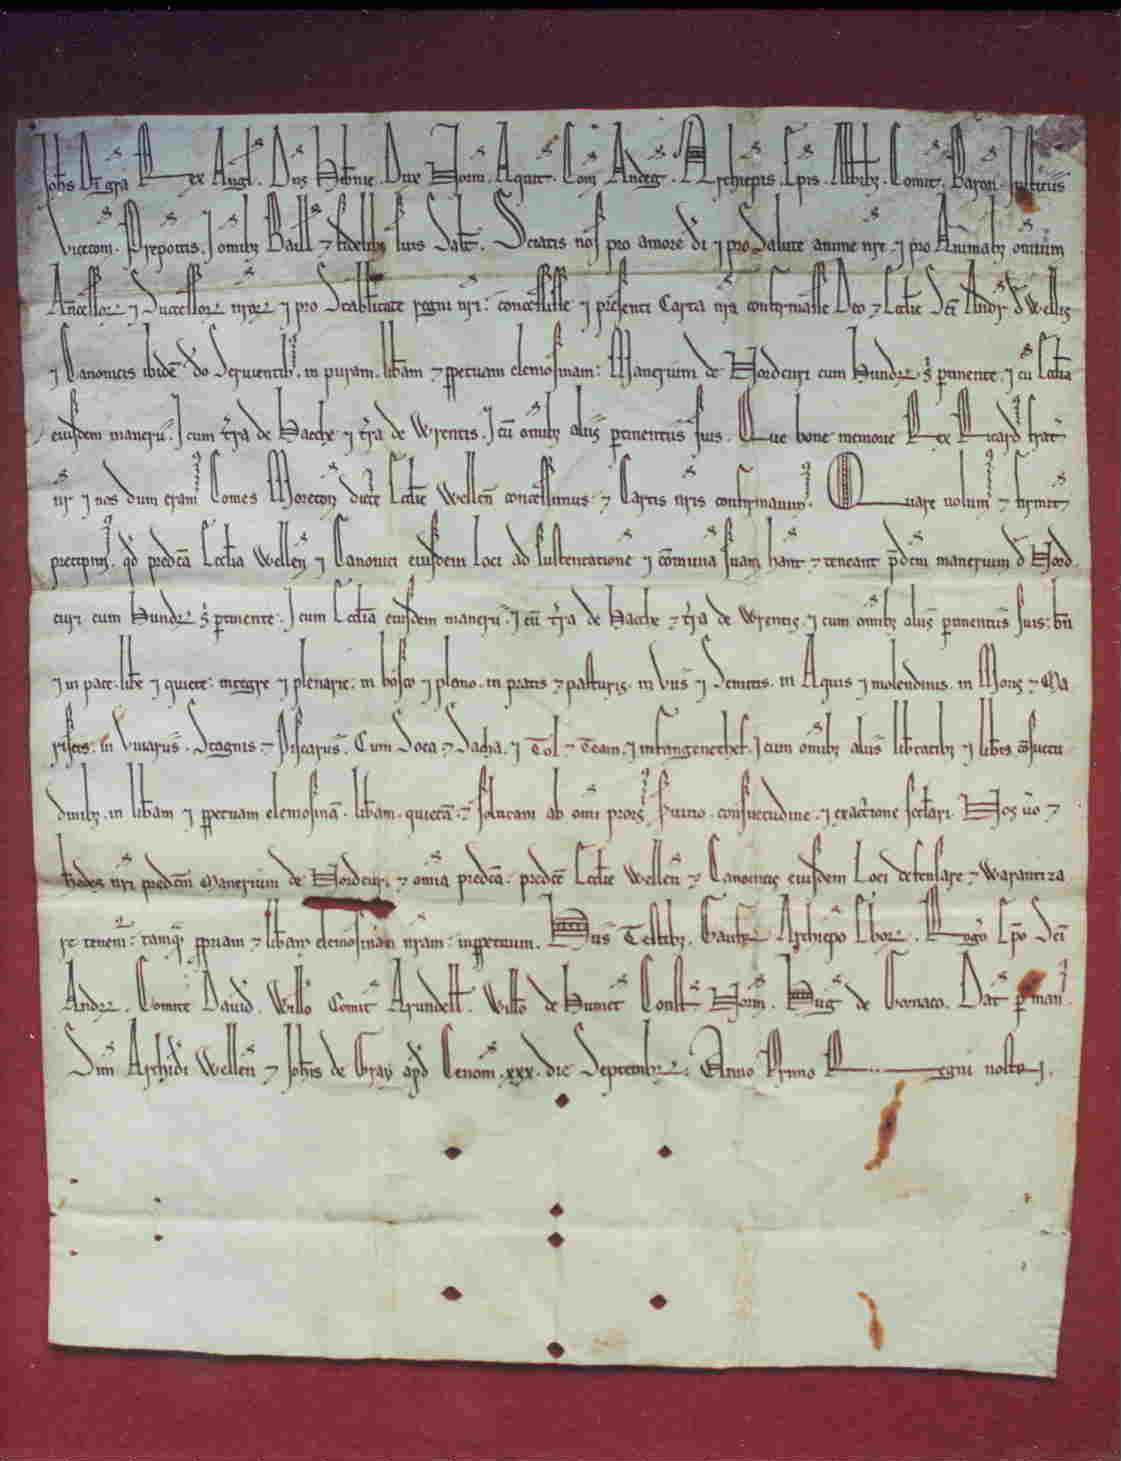 Joh̅s Di gr̅a Rex Angl̅. Dn̅s Hib̅nie. Dux Norm̅. Aquit̅. Com̅ Andeg̅. Archiep̅is. Ep̅is. Abb̅ibȝ. Comit̅. Baron̅. Justiciis
Vicecom̅. Prepositis. ⁊ om̅ibȝ Baill̅ ⁊ fidelibȝ suis Sal̅t. Sciatis nos pro amore di̅ ⁊ pro Salute anime nr̅e ⁊ pro Animabȝ omniu̅m
An̅cessoꝝ ⁊ Successoꝝ nr̅oꝝ ⁊ pro Stabilitate regni nr̅i: concessisse ⁊ presenti Carta nr̅a confirmasse Deo ⁊ Eccl̅ie Sc̅i Andr̅ d̅ Wellis
⁊ Canonicis ibide̅ do̅ Servientibȝ. in puram. lib̅am ⁊ ꝑpetuam elemosinam: Manerium de Nordcuri cum Hundr̅ s̅ pertinente. ⁊ cu̅ Eccl̅ia
eiusdem manerii. ⁊ cum t̅ra de Hacche ⁊ t̅ra de Wrentis. ⁊ cu̅ om̅ibȝ aliis ꝑtinentiis suis. Que bone memorie Rex Ricard̅ frat̅
nr̅ ⁊ nos dum eram̅ Comes Moreton̅ dicte Eccl̅ie Wellen̅ concessimus ⁊ Cartis nr̅is confirmavim̅. Quare volum̅ ⁊ firmit̅
precipim̅. qd̅ predc̅a Eccl̅ia Wellen̅ ⁊ Canonici eiusdem Loci ad sustentatione̅ ⁊ co̅muna̅ suam h̅ant ⁊ teneant p̅dc̅m manerium d̅ Nord
curi cum Hundr̅ s̅ ꝑtinente. ⁊ cum Eccl̅ia eiusdem manerii. ⁊ cu̅ t̅ra de Hacche ⁊ t̅ra de Wrentis. ⁊ cum om̅ibȝ aliis ꝑtinentiis suis: bn̅
⁊ in pace. lib̅e ⁊ quiete: integre ⁊ plenarie: in bosco ⁊ plano. in pratis ⁊ pasturis. in Viis ⁊ Semitis. in Aquis ⁊ molendinis. in Moris ⁊ Ma
riscis: in Vivariis. Stagnis ⁊ Piscariis. Cum Soca ⁊ Sacha. ⁊ Tol ⁊ Team. ⁊ infangenethef. ⁊ cum om̅ibȝ aliis lib̅tatibȝ ⁊ lib̅is co̅suetu
dinibȝ. in lib̅am ⁊ ꝑpetuam elemosina̅. lib̅am. quieta̅. ⁊ solutam ab omi̅ prors̅ s̅vitio. consuetudine. ⁊ exactione sec̅lari. Nos v̅o ⁊
h̅edes nr̅i predc̅m Manerium de Nordcuri ⁊ om̅ia predc̅a. predc̅e Eccl̅ie Wellen̅ ⁊ Canonicis eiusdem Loci defensare ⁊ Warantiza
re tenem̅: tamq̅ ꝓpriam ⁊ lib̅am elemosinam nr̅am: inꝑpetuum. Hiis Testibȝ. Gaut̅ Archiep̅o Eboꝝ. Rog̅o Ep̅o Sc̅i
Andr̅. Comite David̅. Will̅o Comit̅ Arundell̅. Will̅o de Humet̅ Const̅ Norm̅. Hug̅ de Gornaco. Dat̅ ꝑ man̅
Sim̅ Archid̅i Wellen̅ ⁊ Joh̅is de Gray apd̅ Cenom̅. xxx. die Septembr̅. Anno Primo Regni nostri.